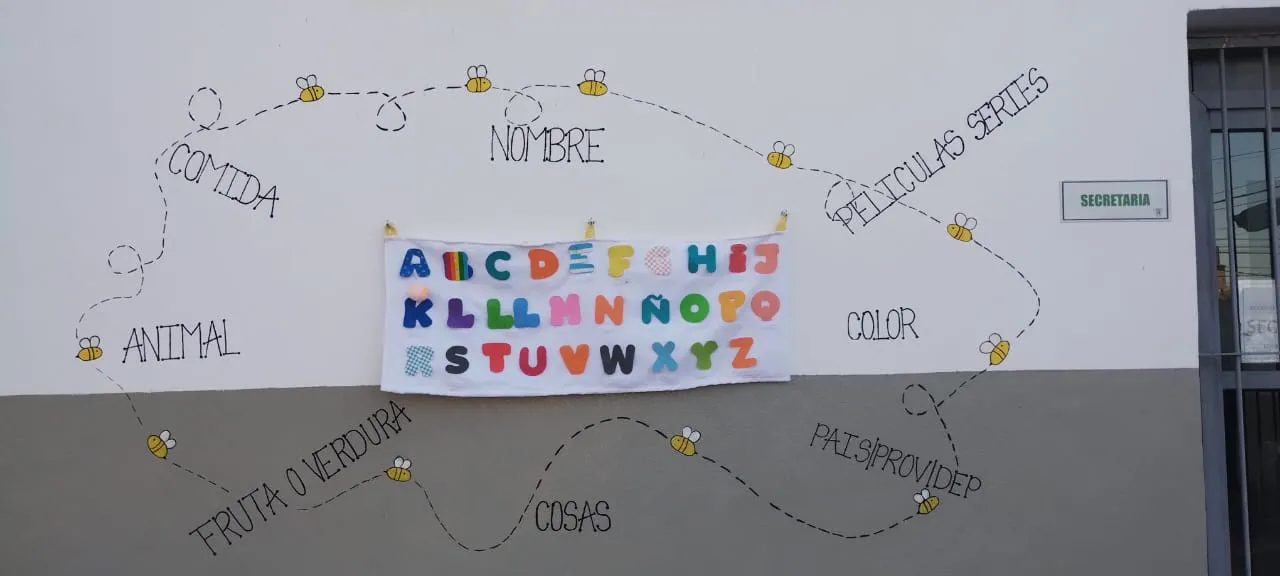 NOMBRE
PELICULAS SERIES
COMIDA
SECRETARIA
A B C D E F G H I J
K L LL M N Ñ O P Q
R S T U V W X Y Z
ANIMAL
COLOR
FRUTA O VERDURA
PAIS|PROV|DEP
COSAS